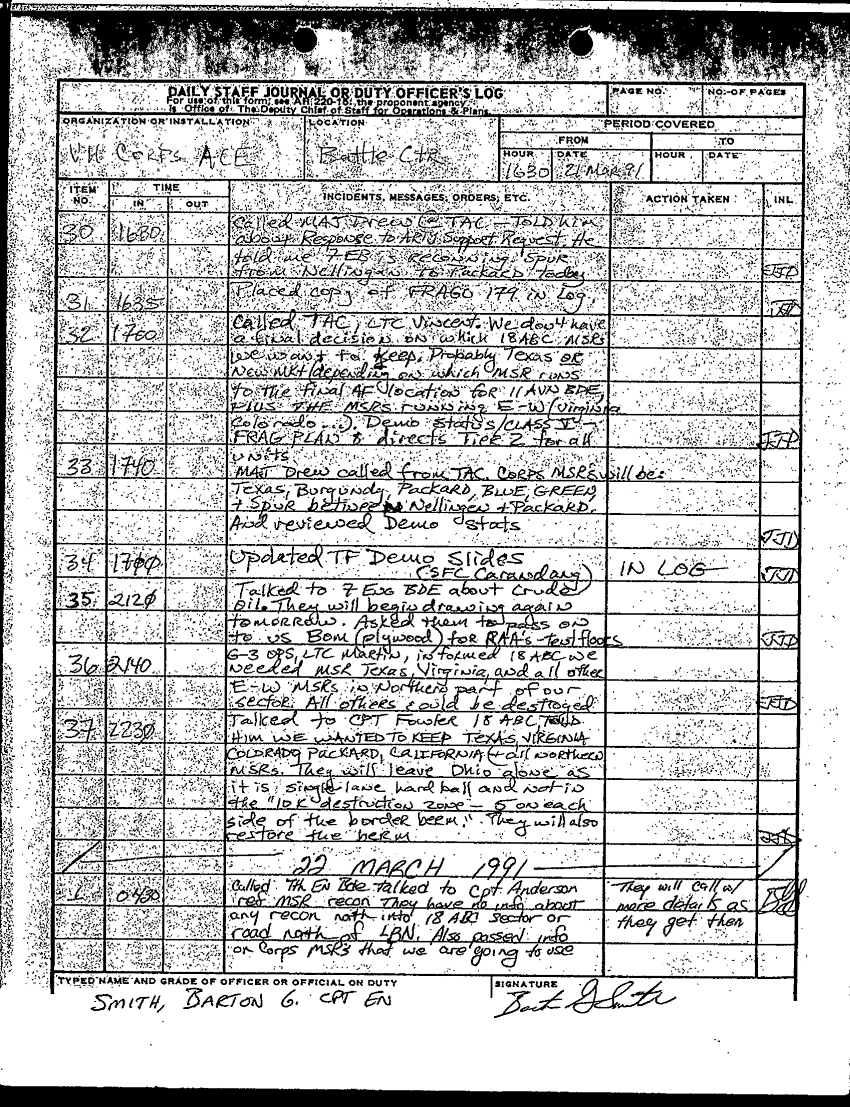 DAILY STAFF JOURNAL OR DUTY OFFICER'S LOG
For use of this form, see AR 220-15; the proponent agency
is Office of The Deputy Chief of Staff for Operations & Plans.
PAGE NO.
NO. OF PAGES
ORGANIZATION OR INSTALLATION
VII CORPS ACE
LOCATION
Battle Ctr
PERIOD COVERED
FROM
TO
HOUR DATE HOUR DATE
1630 21 Mar 91
ITEM NO. TIME INCIDENTS, MESSAGES, ORDERS, ETC. ACTION TAKEN INL
IN OUT
30 1630 Called MAJ Drew @ TAC - Told him
about Response to ARTY Support Request. He
told me 7 EB is reconning Spur
from Nellingen to Packard today
31 1635 Placed copy of FRAGO 179 in Log.
32 1700 Called TAC, LTC Vincent. We don't have
a final decision on which 18ABC MSRs
we want to keep. Probably Texas or
New Mkt (depending on which MSR runs
to the final AF location for 11 AVN BDE,
PLUS THE MSRS running E-W (Virginia
Colorado ...). Demo status/CLASS V -
FRAG PLAN 8 directs Tier 2 for all
units
33 1740 MAJ Drew called from TAC. CORPS MSRs will be:
Texas, Burgundy, Packard, BLUE, GREEN
+ Spur between Nellingen + Packard.
And reviewed Demo stats
34 1700 Updated TF Demo Slides
(SFC Carandang) IN LOG
35 2120 Talked to 7 Eng BDE about Crude
oil. They will begin drawing again
tomorrow. Asked them to pass on
to us Bom (plywood) for RAA's - tent floors
36 2140 G-3 OPS, LTC Martin, informed 18 ABC we
needed MSR Texas, Virginia, and all other
E-W MSRs in Northern part of our
sector. All others could be destroyed
37 2230 Talked to CPT Fowler 18 ABC, TOLD
HIM WE WANTED TO KEEP TEXAS, VIRGINIA
COLORADO, PACKARD, CALIFORNIA (+ all northern
MSRs. They will leave Ohio alone as
it is single lane hard ball and not in
the "10 K destruction zone - 5 on each
side of the border berm." They will also
restore the berm
22 MARCH 1991
1 0430 Called 7th EN Bde Talked to Cpt Anderson They will call w/
(re: MSR recon They have no info about more details as
any recon north into 18 ABC sector or they get them
road north of LBN. Also passed info
on Corps MSR's that we are going to use
TYPED NAME AND GRADE OF OFFICER OR OFFICIAL ON DUTY
SMITH, BARTON G. CPT EN
SIGNATURE
Bart G Smith